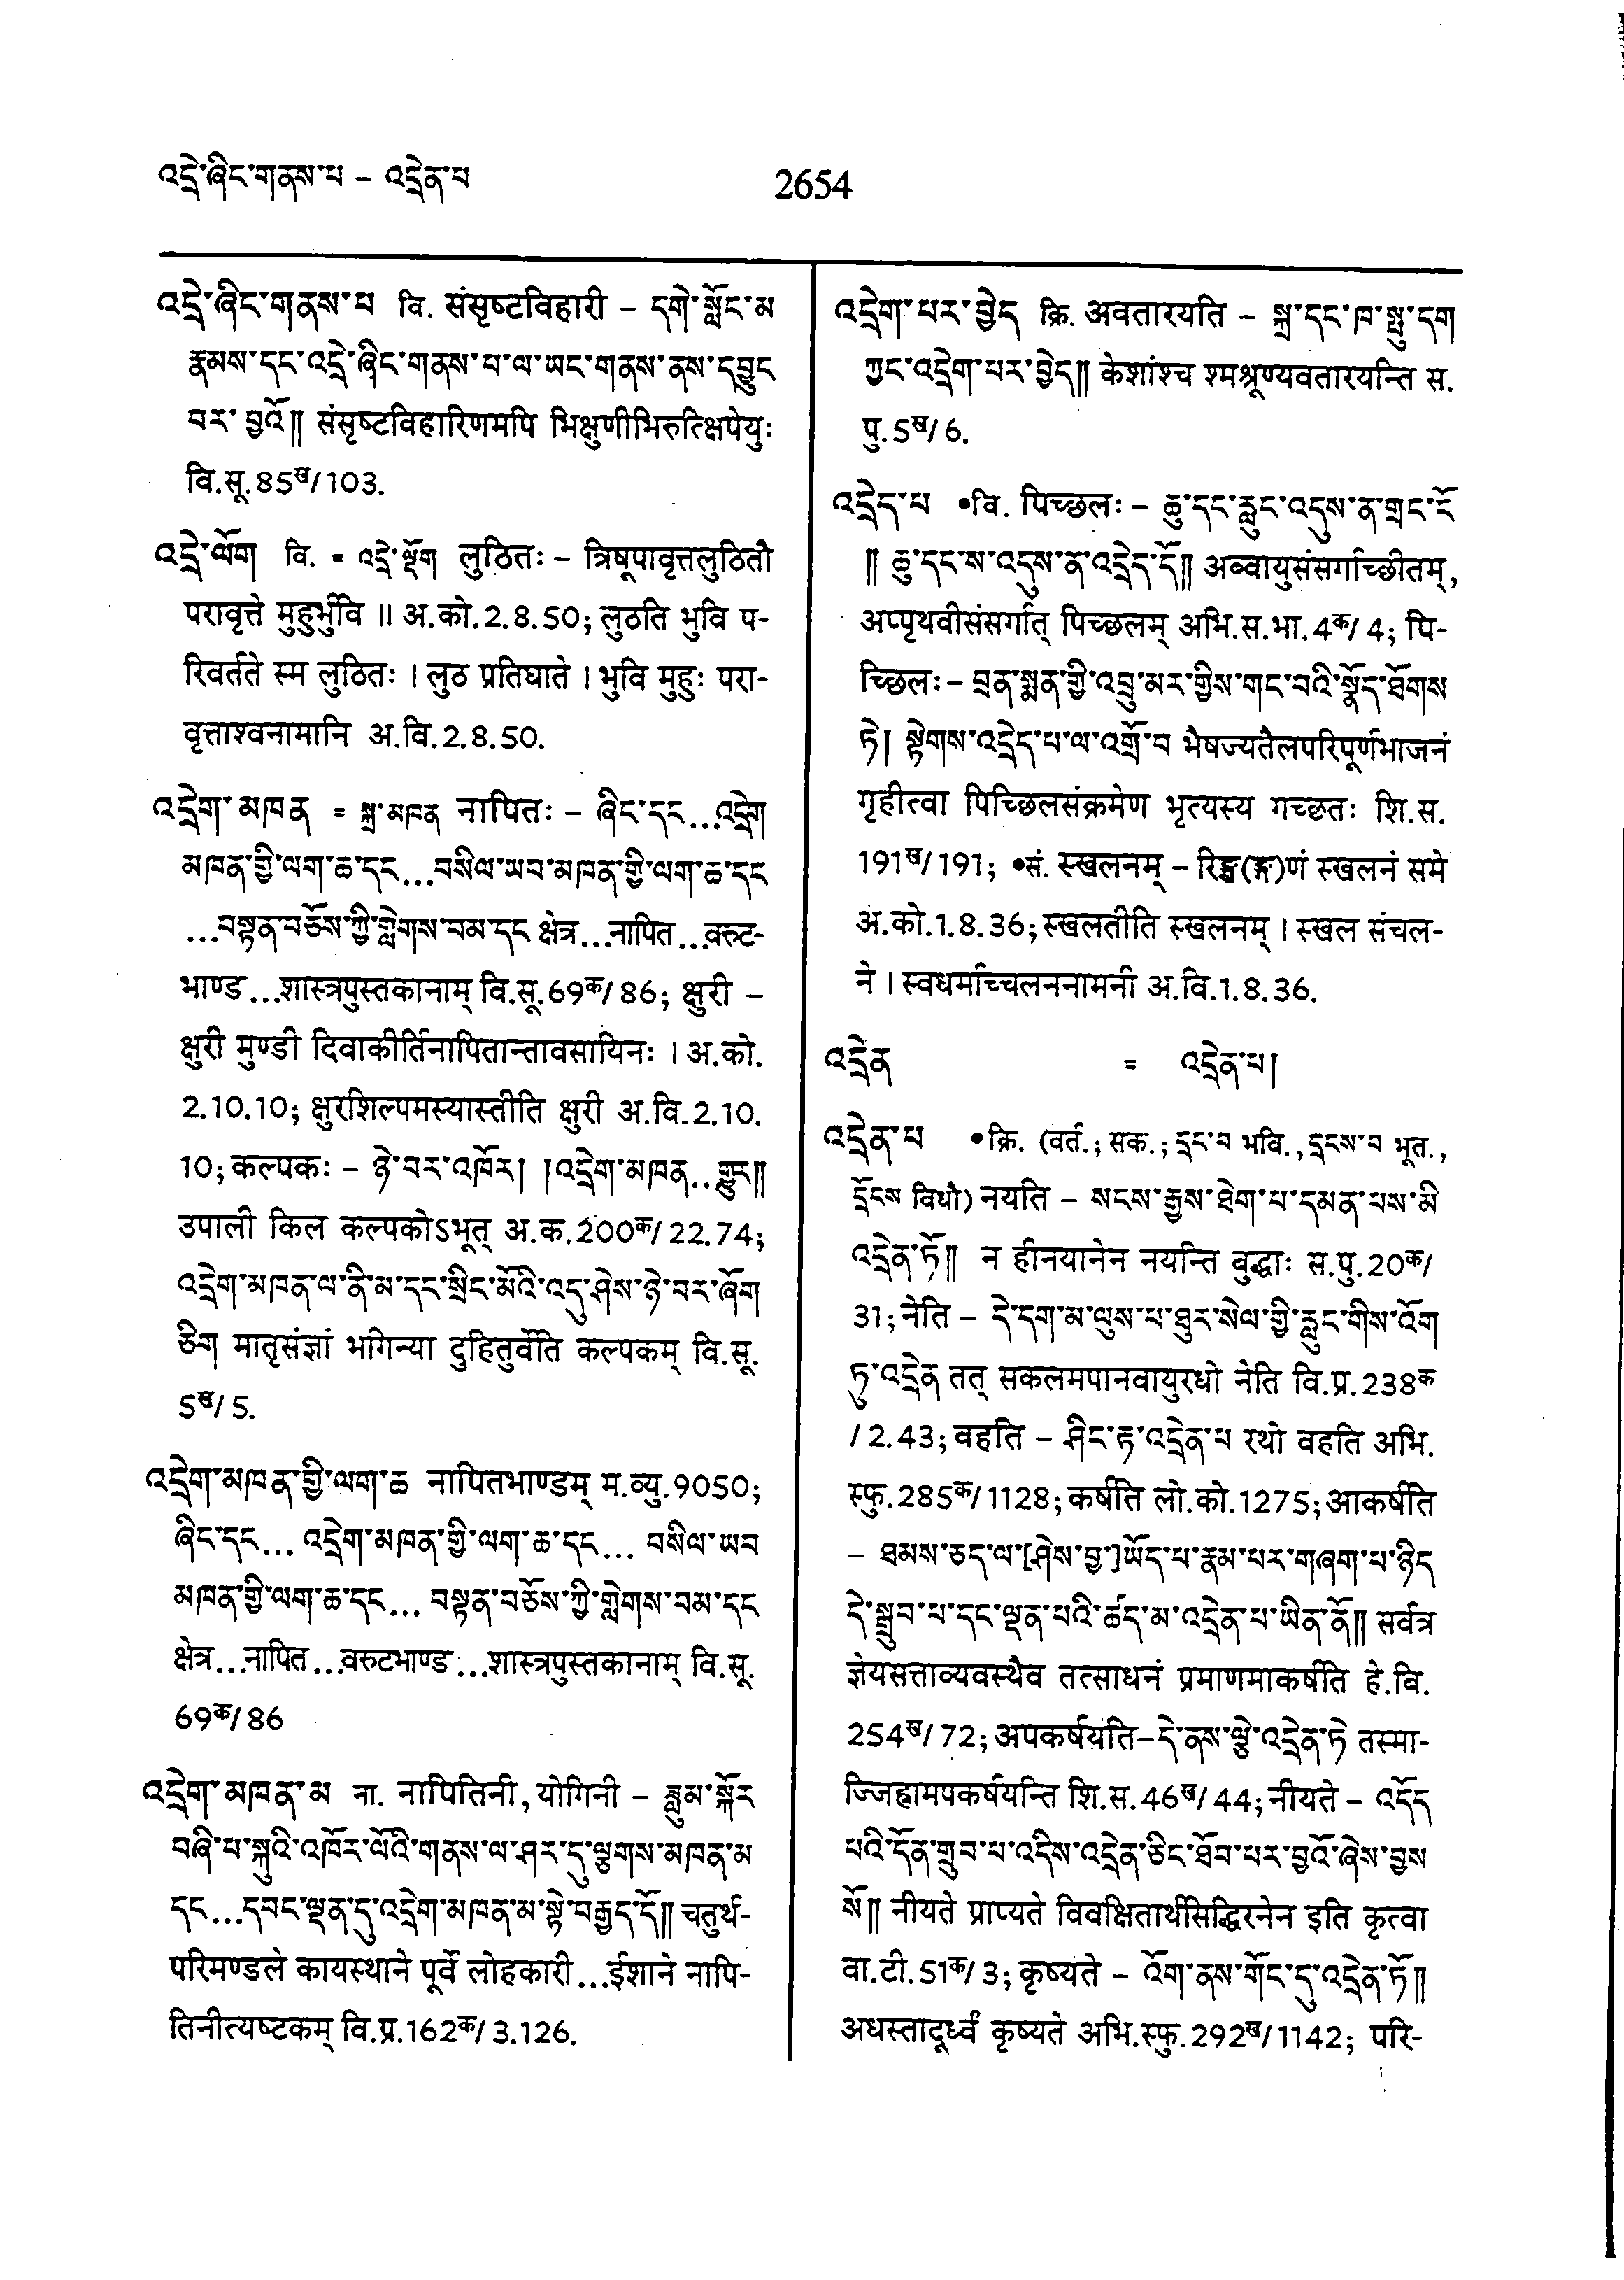 འདྲེ་ཞིང་གནས་པ – འདྲེན་པ
2654
འདྲེ་ཞིང་གནས་པ वि. संसृष्टविहारी – དགེ་སློང་མ
རྣམས་དང་འདྲེ་ཞིང་གནས་པ་ལ་ཡང་གནས་ནས་དབྱུང
བར་བྱའོ༎ संसृष्टविहारिणमपि भिक्षुणीभिरुत्क्षिपेयुः
वि.सू.85ख/103.
འདྲེ་ལོག वि. = འདྲེ་ལྡོག लुठितः – त्रिषूपावृत्तलुठितौ
परावृत्ते मुहुर्भुवि ॥ अ.को.2.8.50; लुठति भुवि प-
रिवर्तते स्म लुठितः । लुठ प्रतिघाते । भुवि मुहुः परा-
वृत्ताश्वनामानि अ.वि.2.8.50.
འདྲེག་མཁན = སྐྲ་མཁན नापितः – ཞིང་དང...འདྲེག
མཁན་གྱི་ལག་ཆ་དང...བསིལ་ཡབ་མཁན་གྱི་ལག་ཆ་དང
...བསྟན་བཅོས་ཀྱི་གླེགས་བམ་དང क्षेत्र...नापित...वरुट-
भाण्ड...शास्त्रपुस्तकानाम् वि.सू.69क/86; क्षुरी –
क्षुरी मुण्डी दिवाकीर्तिनापितान्तावसायिनः । अ.को.
2.10.10; क्षुरशिल्पमस्यास्तीति क्षुरी अ.वि.2.10.
10; कल्पकः – ཉེ་བར་འཁོར། །འདྲེག་མཁན..གྱུར༎
उपाली किल कल्पकोऽभूत् अ.क.200क/22.74;
འདྲེག་མཁན་ལ་ནི་མ་དང་སྲིང་མོའི་འདུ་ཤེས་ཉེ་བར་ཞོག
ཅིག मातृसंज्ञां भगिन्या दुहितुर्वेति कल्पकम् वि.सू.
5ख/5.
འདྲེག་མཁན་གྱི་ལག་ཆ नापितभाण्डम् म.व्यु.9050;
ཞིང་དང... འདྲེག་མཁན་གྱི་ལག་ཆ་དང... བསིལ་ཡབ
མཁན་གྱི་ལག་ཆ་དང... བསྟན་བཅོས་ཀྱི་གླེགས་བམ་དང
क्षेत्र...नापित...वरुटभाण्ड...शास्त्रपुस्तकानाम् वि.सू.
69क/86
འདྲེག་མཁན་མ ना. नापितिनी, योगिनी – ཟླུམ་སྐོར
བཞི་པ་སྐུའི་འཁོར་ལོའི་གནས་ལ་ཤར་དུ་ལྕགས་མཁན་མ
དང...དབང་ལྡན་དུ་འདྲེག་མཁན་མ་སྟེ་བརྒྱད་དོ༎ चतुर्थ-
परिमण्डले कायस्थाने पूर्वे लोहकारी...ईशाने नापि-
तिनीत्यष्टकम् वि.प्र.162क/3.126.
འདྲེག་པར་བྱེད क्रि. अवतारयति – སྐྲ་དང་ཁ་སྤུ་དག
ཀྱང་འདྲེག་པར་བྱེད༎ केशांश्च श्मश्रूण्यवतारयन्ति स.
पु.5ख/6.
འདྲེད་པ •वि. पिच्छलः – ཆུ་དང་རླུང་འདུས་ན་གྲང་ངོ
༎ ཆུ་དང་ས་འདུས་ན་འདྲེད་དོ༎ अब्वायुसंसर्गाच्छीतम्,
अप्पृथवीसंसर्गात् पिच्छलम् अभि.स.भा.4क/4; पि-
च्छिलः – བྲན་སྨན་གྱི་འབྲུ་མར་གྱིས་གང་བའི་སྣོད་ཐོགས
ཏེ། སྟེགས་འདྲེད་པ་ལ་འགྲོ་བ भैषज्यतैलपरिपूर्णभाजनं
गृहीत्वा पिच्छिलसंक्रमेण भृत्यस्य गच्छतः शि.स.
191ख/191; •सं. स्खलनम् – रिङ्ख(ङ्ग)णं स्खलनं समे
अ.को.1.8.36; स्खलतीति स्खलनम् । स्खल संचल-
ने । स्वधर्माच्चलननामनी अ.वि.1.8.36.
འདྲེན = འདྲེན་པ།
འདྲེན་པ •क्रि. (वर्त.; सक.; དྲང་བ भवि., དྲངས་པ भूत.,
དྲོངས विधौ) नयति – སངས་རྒྱས་ཐེག་པ་དམན་པས་མི
འདྲེན་ཏོ༎ न हीनयानेन नयन्ति बुद्धाः स.पु.20क/
31; नेति – དེ་དག་མ་ལུས་པ་ཐུར་སེལ་གྱི་རླུང་གིས་འོག
ཏུ་འདྲེན तत् सकलमपानवायुरधो नेति वि.प्र.238क
/2.43; वहति – ཤིང་རྟ་འདྲེན་པ रथो वहति अभि.
स्फु.285क/1128; कर्षति लो.को.1275; आकर्षति
– ཐམས་ཅད་ལ་[ཤེས་བྱ་]ཡོད་པ་རྣམ་པར་གཞག་པ་ཉིད
དེ་སྒྲུབ་པ་དང་ལྡན་པའི་ཚད་མ་འདྲེན་པ་ཡིན་ནོ༎ सर्वत्र
ज्ञेयसत्ताव्यवस्थैव तत्साधनं प्रमाणमाकर्षति हे.वि.
254ख/72; अपकर्षयति–དེ་ནས་ལྕེ་འདྲེན་ཏེ तस्मा-
ज्जिह्वामपकर्षयन्ति शि.स.46ख/44; नीयते – འདོད
པའི་དོན་གྲུབ་པ་འདིས་འདྲེན་ཅིང་ཐོབ་པར་བྱའོ་ཞེས་བྱས
སོ༎ नीयते प्राप्यते विवक्षितार्थसिद्धिरनेन इति कृत्वा
वा.टी.51क/3; कृष्यते – འོག་ནས་གོང་དུ་འདྲེན་ཏོ༎
अधस्तादूर्ध्वं कृष्यते अभि.स्फु.292ख/1142; परि-